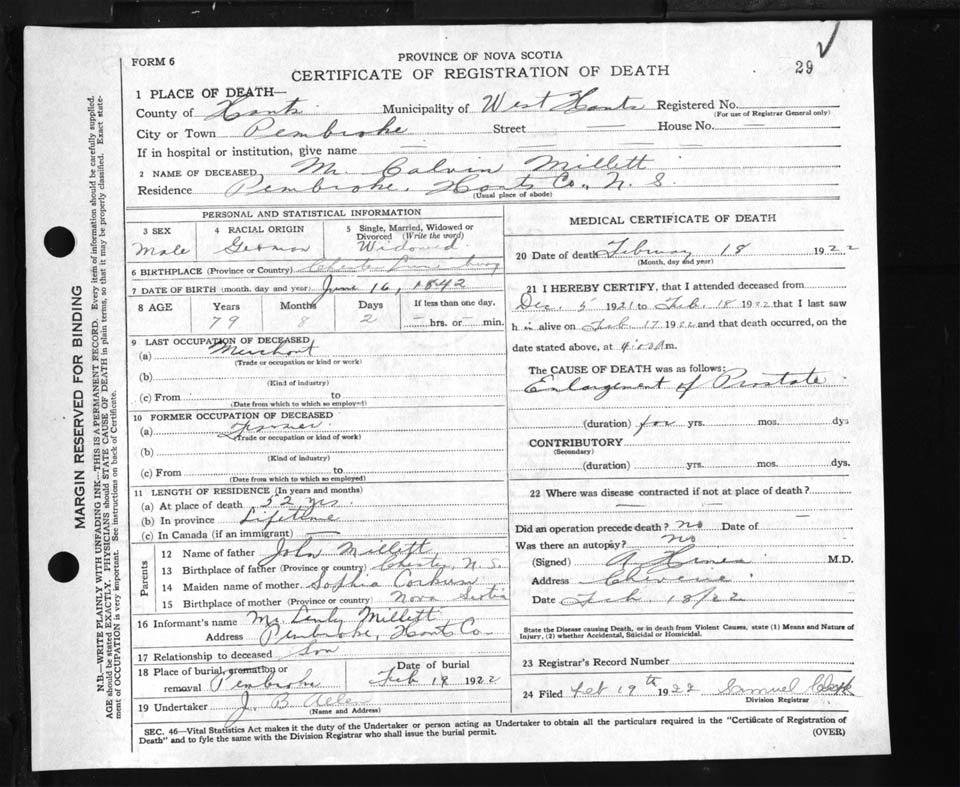 FORM 6
PROVINCE OF NOVA SCOTIA
CERTIFICATE OF REGISTRATION OF DEATH
29
1 PLACE OF DEATH—
County of Hants Municipality of West Hants Registered No.
(For use of Registrar General only)
City or Town Pembroke Street — House No. —
If in hospital or institution, give name —
2 NAME OF DECEASED Mr. Calvin Millett
Residence Pembroke, Hants Co., N. S.
(Usual place of abode)
PERSONAL AND STATISTICAL INFORMATION
3 SEX
Male
4 RACIAL ORIGIN
German
5 Single, Married, Widowed or Divorced (Write the word)
Widowed
6 BIRTHPLACE (Province or Country) Chester
7 DATE OF BIRTH (month, day and year) June 16, 1842
8 AGE Years Months Days If less than one day,
79 8 2 — hrs. or — min.
9 LAST OCCUPATION OF DECEASED
(a) Merchant
(Trade or occupation or kind or work)
(b)
(Kind of industry)
(c) From to
(Date from which to which so employed)
10 FORMER OCCUPATION OF DECEASED
(a) Farmer
(Trade or occupation or kind of work)
(b)
(Kind of industry)
(c) From to
(Date from which to which so employed)
11 LENGTH OF RESIDENCE (In years and months)
(a) At place of death 52 yrs.
(b) In province Lifetime
(c) In Canada (if an immigrant) —
Parents
12 Name of father John Millett
13 Birthplace of father (Province or country) Chester, N. S.
14 Maiden name of mother Sophia Corkum
15 Birthplace of mother (Province or country) Nova Scotia
16 Informant's name Mr. Millett
Address Pembroke, Hants Co.
17 Relationship to deceased Son
18 Place of burial, cremation or removal Pembroke Date of burial Feb 19 1922
19 Undertaker J. B.
(Name and Address)
MEDICAL CERTIFICATE OF DEATH
20 Date of death February 18 1922
(Month, day and year)
21 I HEREBY CERTIFY, that I attended deceased from
Dec. 5 1921 to Feb. 18 1922 that I last saw
h im alive on Feb 17 1922 and that death occurred, on
date stated above, at 4:00 m.
The CAUSE OF DEATH was as follows:
Enlargement of Prostate
(duration) for yrs. mos. dys
CONTRIBUTORY
(Secondary)
(duration) yrs. mos. dys.
22 Where was disease contracted if not at place of death?
— —
Did an operation precede death? no Date of —
Was there an autopsy? no
(Signed) A. M.D.
Address
Date Feb 18/22
State the Disease causing Death, or in death from Violent Causes, state (1) Means and Nature of
Injury, (2) whether Accidental, Suicidal or Homicidal.
23 Registrar's Record Number
24 Filed Feb 19th 1922 Samuel
Division Registrar
SEC. 46—Vital Statistics Act makes it the duty of the Undertaker or person acting as Undertaker to obtain all the particulars required in the "Certificate of Registration of
Death" and to fyle the same with the Division Registrar who shall issue the burial permit. (OVER)
MARGIN RESERVED FOR BINDING
N.B.—WRITE PLAINLY WITH UNFADING INK—THIS IS A PERMANENT RECORD. Every item of information should be carefully supplied.
AGE should be stated EXACTLY. PHYSICIANS should STATE CAUSE OF DEATH in plain terms, so that it may be properly classified. Exact state-
ment of OCCUPATION is very important. See instructions on back of Certificate.